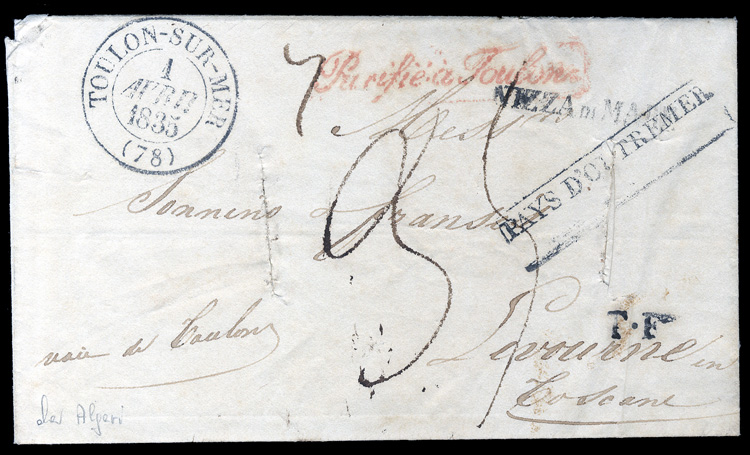 TOULON-SUR-MER
1
AVRIL
1835
(78)
Purifié à Toulon
NIZZA DI MAR
PAYS D'OUTREMER
Sonnino &
P.F
voie de Toulon
Livourne en
Toscane
da Algeri